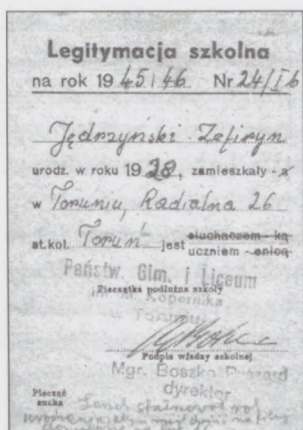 Legitymacja szkolna
na rok 1945/46 Nr 24/I b
Jędrzyński Zefiryn
urodz. w roku 1928, zamieszkały - a
w Toruniu, Radialna 26
st. kol. Toruń jest słuchaczem - ką
uczniem - enicą
Państw. Gim. i Liceum
Pieczątka podłużna szkoły
im. M. Kopernika
w Toruniu
Podpis władzy szkolnej
Mgr. Boszko
dyrektor
Pieczęć
sucha